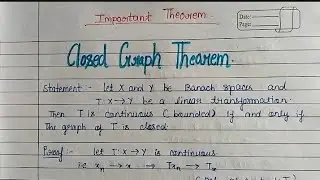 Important Theorem.
Date:
Page:
Closed Graph Theorem.
Statement :- let X and Y be Banach spaces and
T: X → Y be a linear transformation.
Then T is continuous (bounded) if and only if
the graph of T is closed.
Proof :- let T: X → Y is continuous
ie xn → x → Txn → Tx